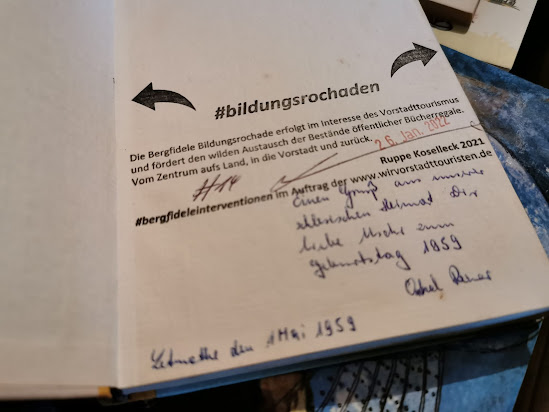 #bildungsrochaden
Die Bergfidele Bildungsrochade erfolgt im Interesse des Vorstadttourismus
und fördert den wilden Austausch der Bestände öffentlicher Bücherregale.
Vom Zentrum aufs Land, in die Vorstadt und zurück.
26. Jan. 2022
#14
Ruppe Koselleck 2021
#bergfideleinterventionen im Auftrag der www.wirvorstadttouristen.de
Einen Gruß aus unserer
Heimat Dir
liebe zum
Geburtstag 1959
Letmathe den 1 Mai 1959